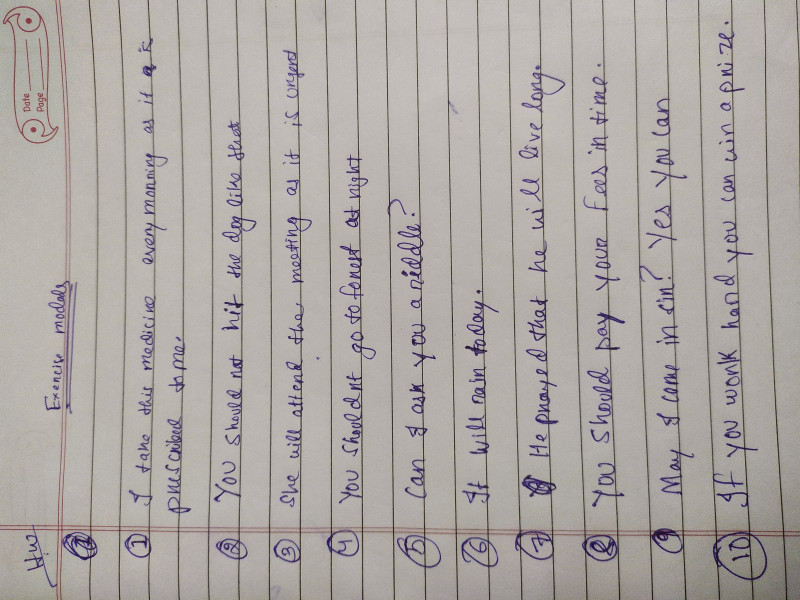 Date
Page
H.W
Exercise modals
① I take this medicine every morning as it is
prescribed to me.
② You should not hit the dog like that
③ She will attend the meeting as it is urgent
④ You shouldnt go to forest at night
⑤ Can I ask you a riddle?
⑥ It will rain today.
⑦ He prayed that he will live long.
⑧ You should pay your Fees in time.
⑨ May I come in sir? Yes you can
⑩ If you work hard you can win a prize.